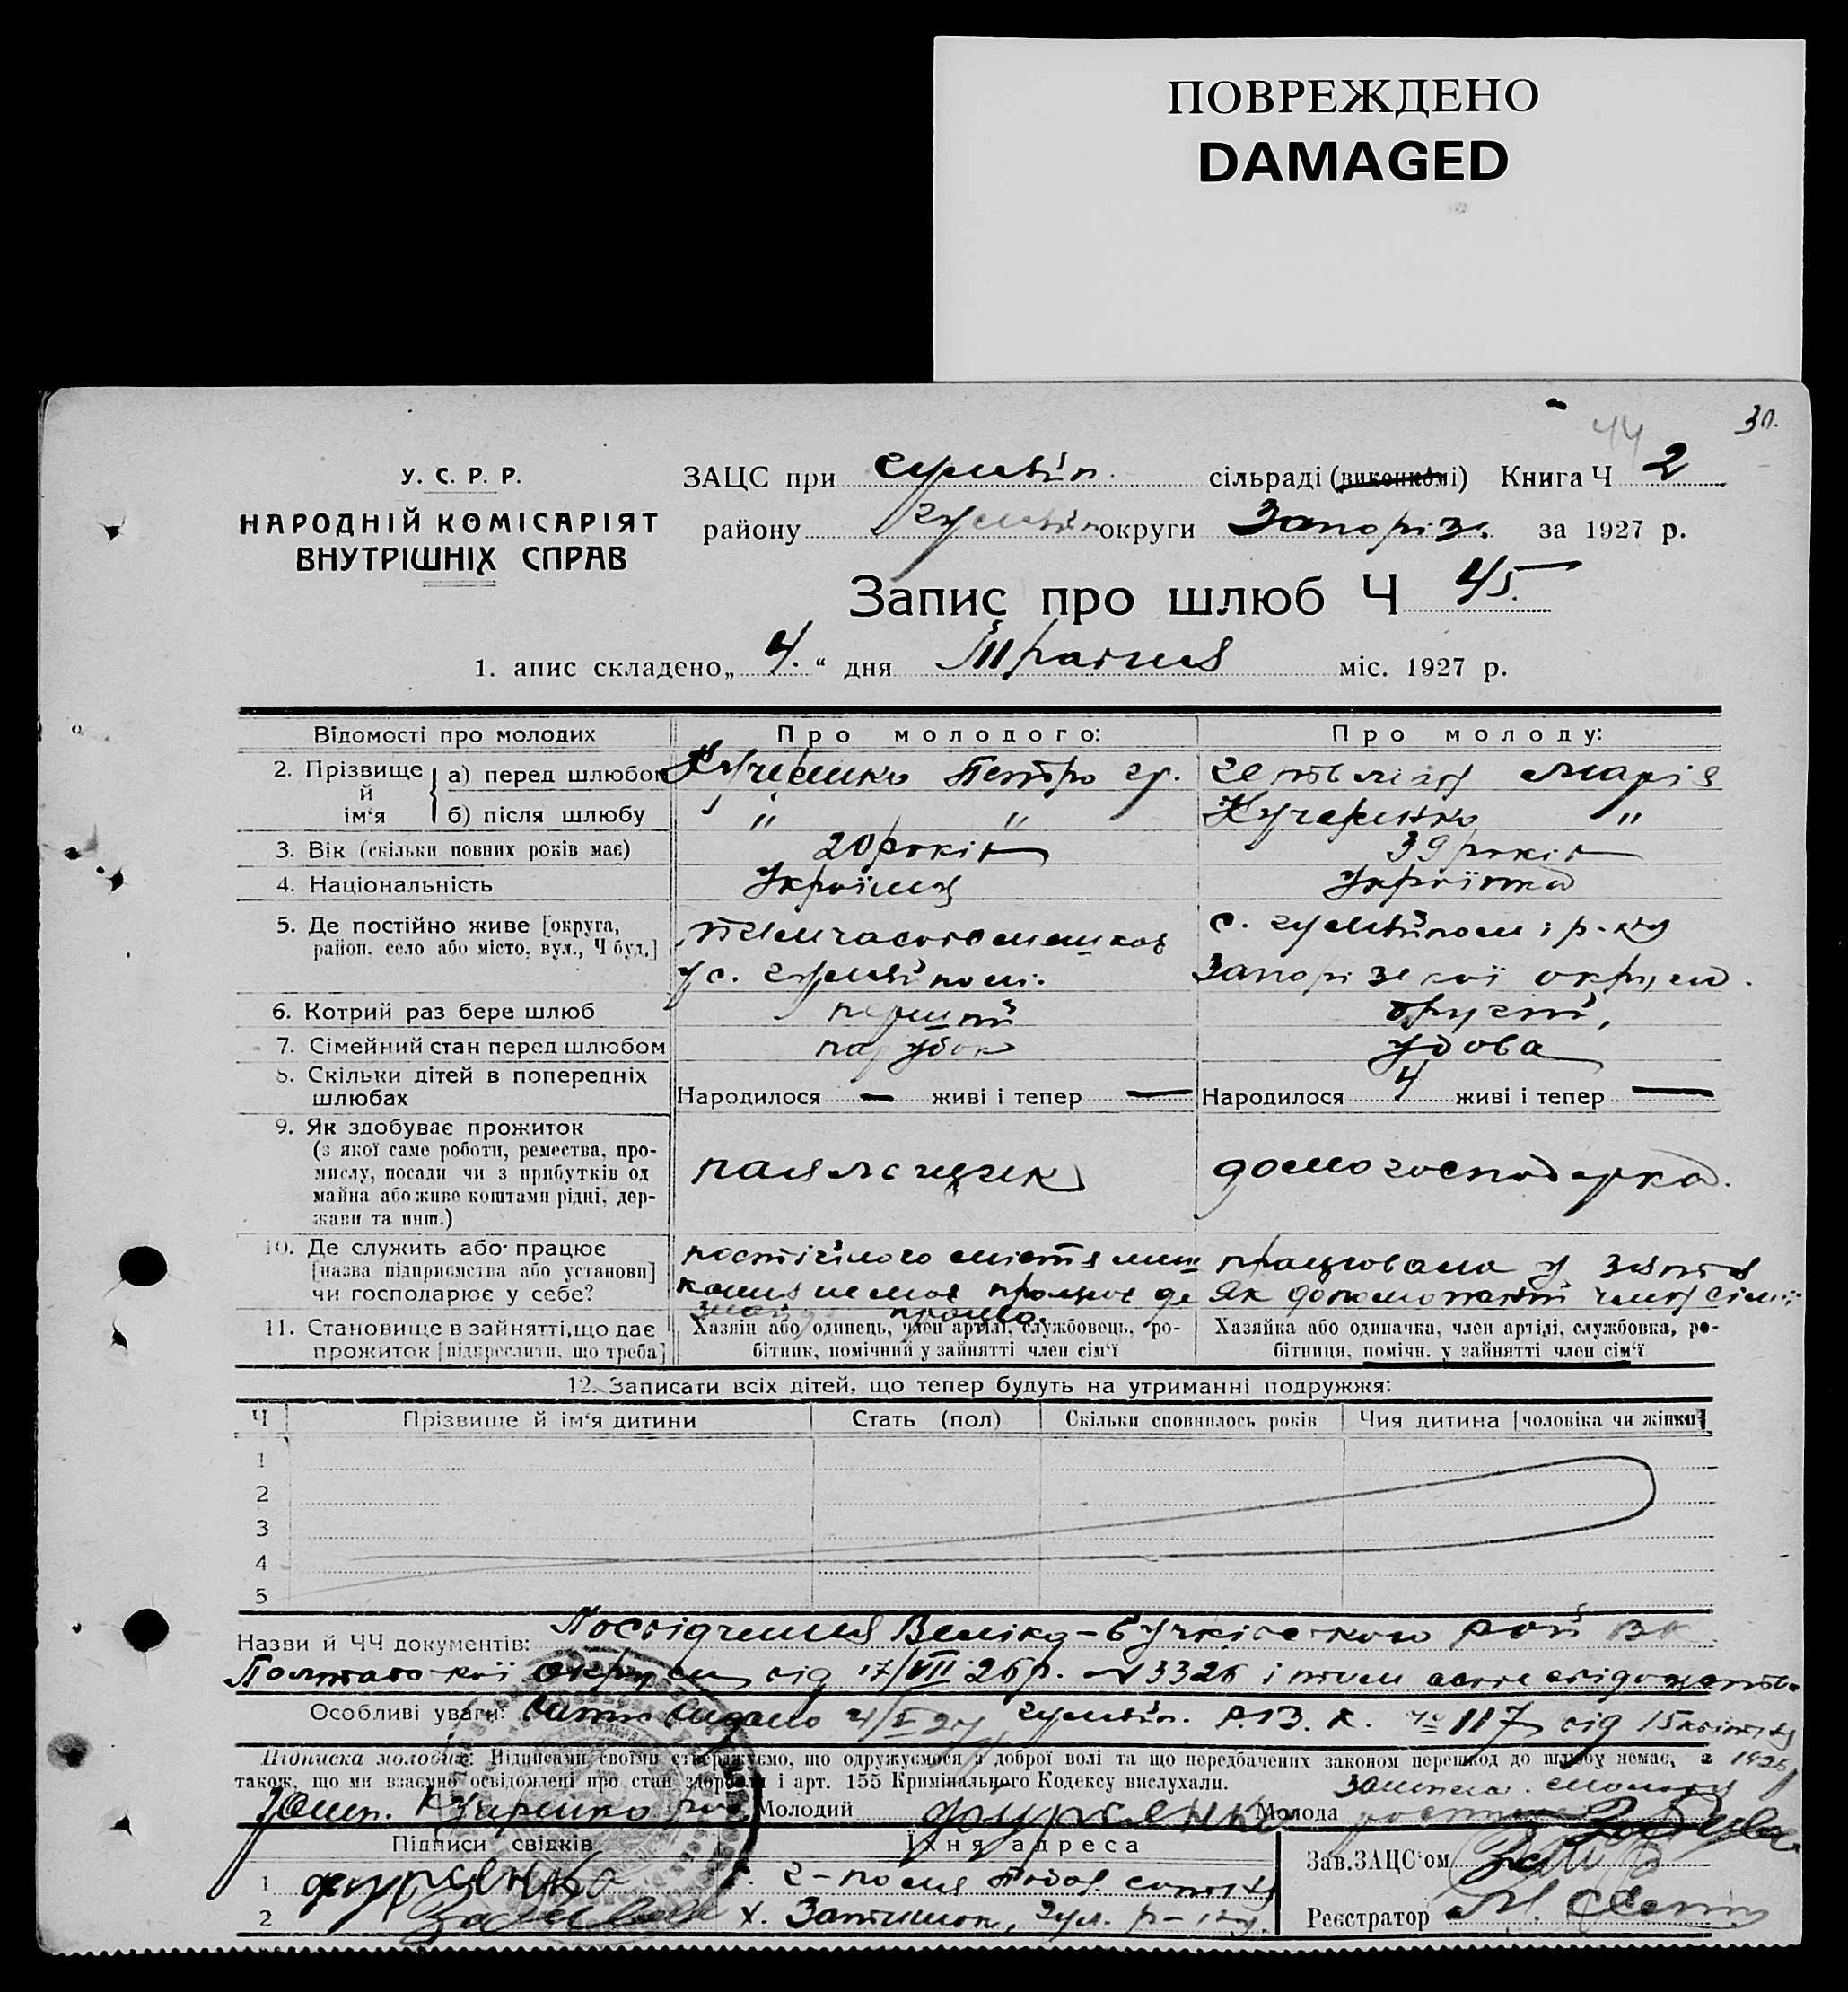 ПОВРЕЖДЕНО
DAMAGED
30.
44
У. С. Р. Р.
НАРОДНІЙ КОМІСАРІЯТ
ВНУТРІШНІХ СПРАВ
ЗАЦС при Гуляйп. сільраді (виконкомі) Книга Ч 2
району Гуляйп округи Запоріз. за 1927 р.
Запис про шлюб Ч 45.
1. апис складено „ 4. “ дня Травня міс. 1927 р.
Відомості про молодих
Про молодого:
Про молоду:
2. Прізвище й ім‘я
а) перед шлюбом
Кучеренко Петро гр.
Марія
б) після шлюбу
" "
Кучеренко "
3. Вік (скільки повних років має)
20 років
39 років
4. Національність
Україн
Українка
5. Де постійно живе [округа,
район, село або місто, вул., Ч буд.]
тимчасово мешкає
у с. Гуляйполі.
с. Гуляйполі р-ну
Запорізької округи.
6. Котрий раз бере шлюб
перший
другий,
7. Сімейний стан перед шлюбом
парубок
удова
8. Скільки дітей в попередніх
шлюбах
Народилося — живі і тепер —
Народилося 4 живі і тепер —
9. Як здобуває прожиток
(з якої саме роботи, ремества, про-
мислу, посади чи з прибутків од
майна або живе коштами рідні, дер-
жави та инш.)
паяльщик
домогосподарка.
10. Де служить або працює
[назва підприємства або установи]
чи господарює у себе?
постійного містя меш
кання немає працює де
працювала у
як допоможний член сімї
11. Становище в зайнятті, що дає
прожиток [підкреслити, що треба]
Хазяїн або одинець, член артілі, службовець, ро-
бітник, помічний у зайнятті член сім‘ї
Хазяйка або одиначка, член артілі, службовка, ро-
бітниця, помічн. у зайнятті член сім‘ї
12. Записати всіх дітей, що тепер будуть на утриманні подружжя:
Ч
Прізвище й ім‘я дитини
Стать (пол)
Скільки сповнилось років
Чия дитина [чоловіка чи жінки]
1
2
3
4
5
Назви й ЧЧ документів: Посвідчення Велико-Бучківського Рай ВК
Полтавської округи від 17/VII 26 р. N 3326 і
Особливі уваги: видано 4/V 27 Гуляйп. Р.В.К. № 117 від 15
Підписка молодих: Підписами своїми стверджуємо, що одружуємося з доброї волі та що передбачених законом перешкод до шлюбу немає, а
також, що ми взаємно освідомлені про стан здоровля і арт. 155 Кримінального Кодексу вислухали.
Молодий
Молода
Підписи свідків
Їхня адреса
Зав. ЗАЦС‘ом
1
2
х. Затишок, Гул. р-ну.
Реєстратор